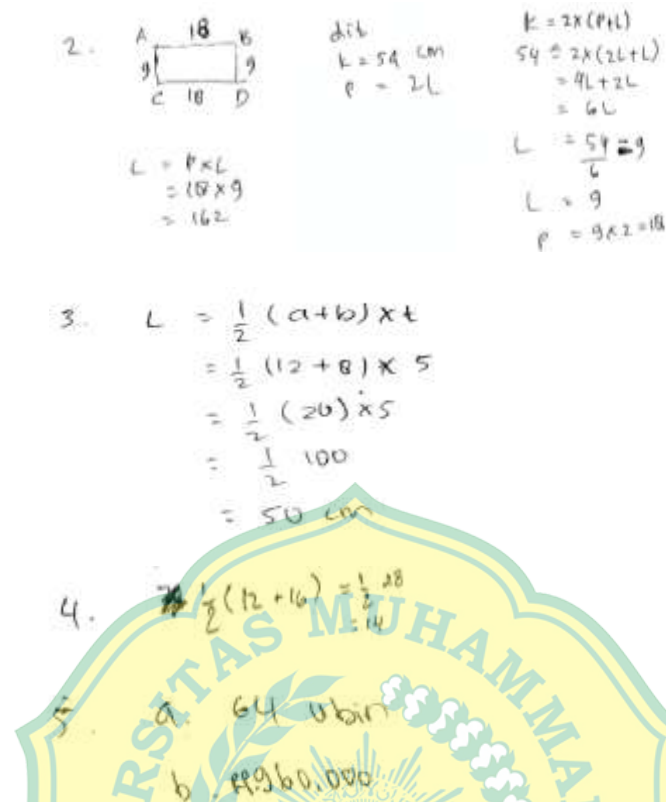 2.
A 18 B
9 9
C 18 D
dit
k = 54 cm
p = 2L
k = 2x(p+L)
54 = 2x(2L+L)
= 4L+2L
= 6L
L = 54/6 = 9
L = 9
p = 9x2 = 18
L = p x L
= 18 x 9
= 162
3. L = 1/2 (a+b) x t
= 1/2 (12 + 8) x 5
= 1/2 (20) x 5
= 1/2 100
= 50 cm
4. 1/2 (12 + 16) = 1/2 28
= 14
5. a. 64 ubin
b. Rp.960.000
RSITAS MUHAMMA